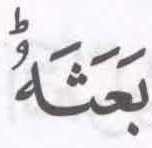 بَعَثَهٗؕ